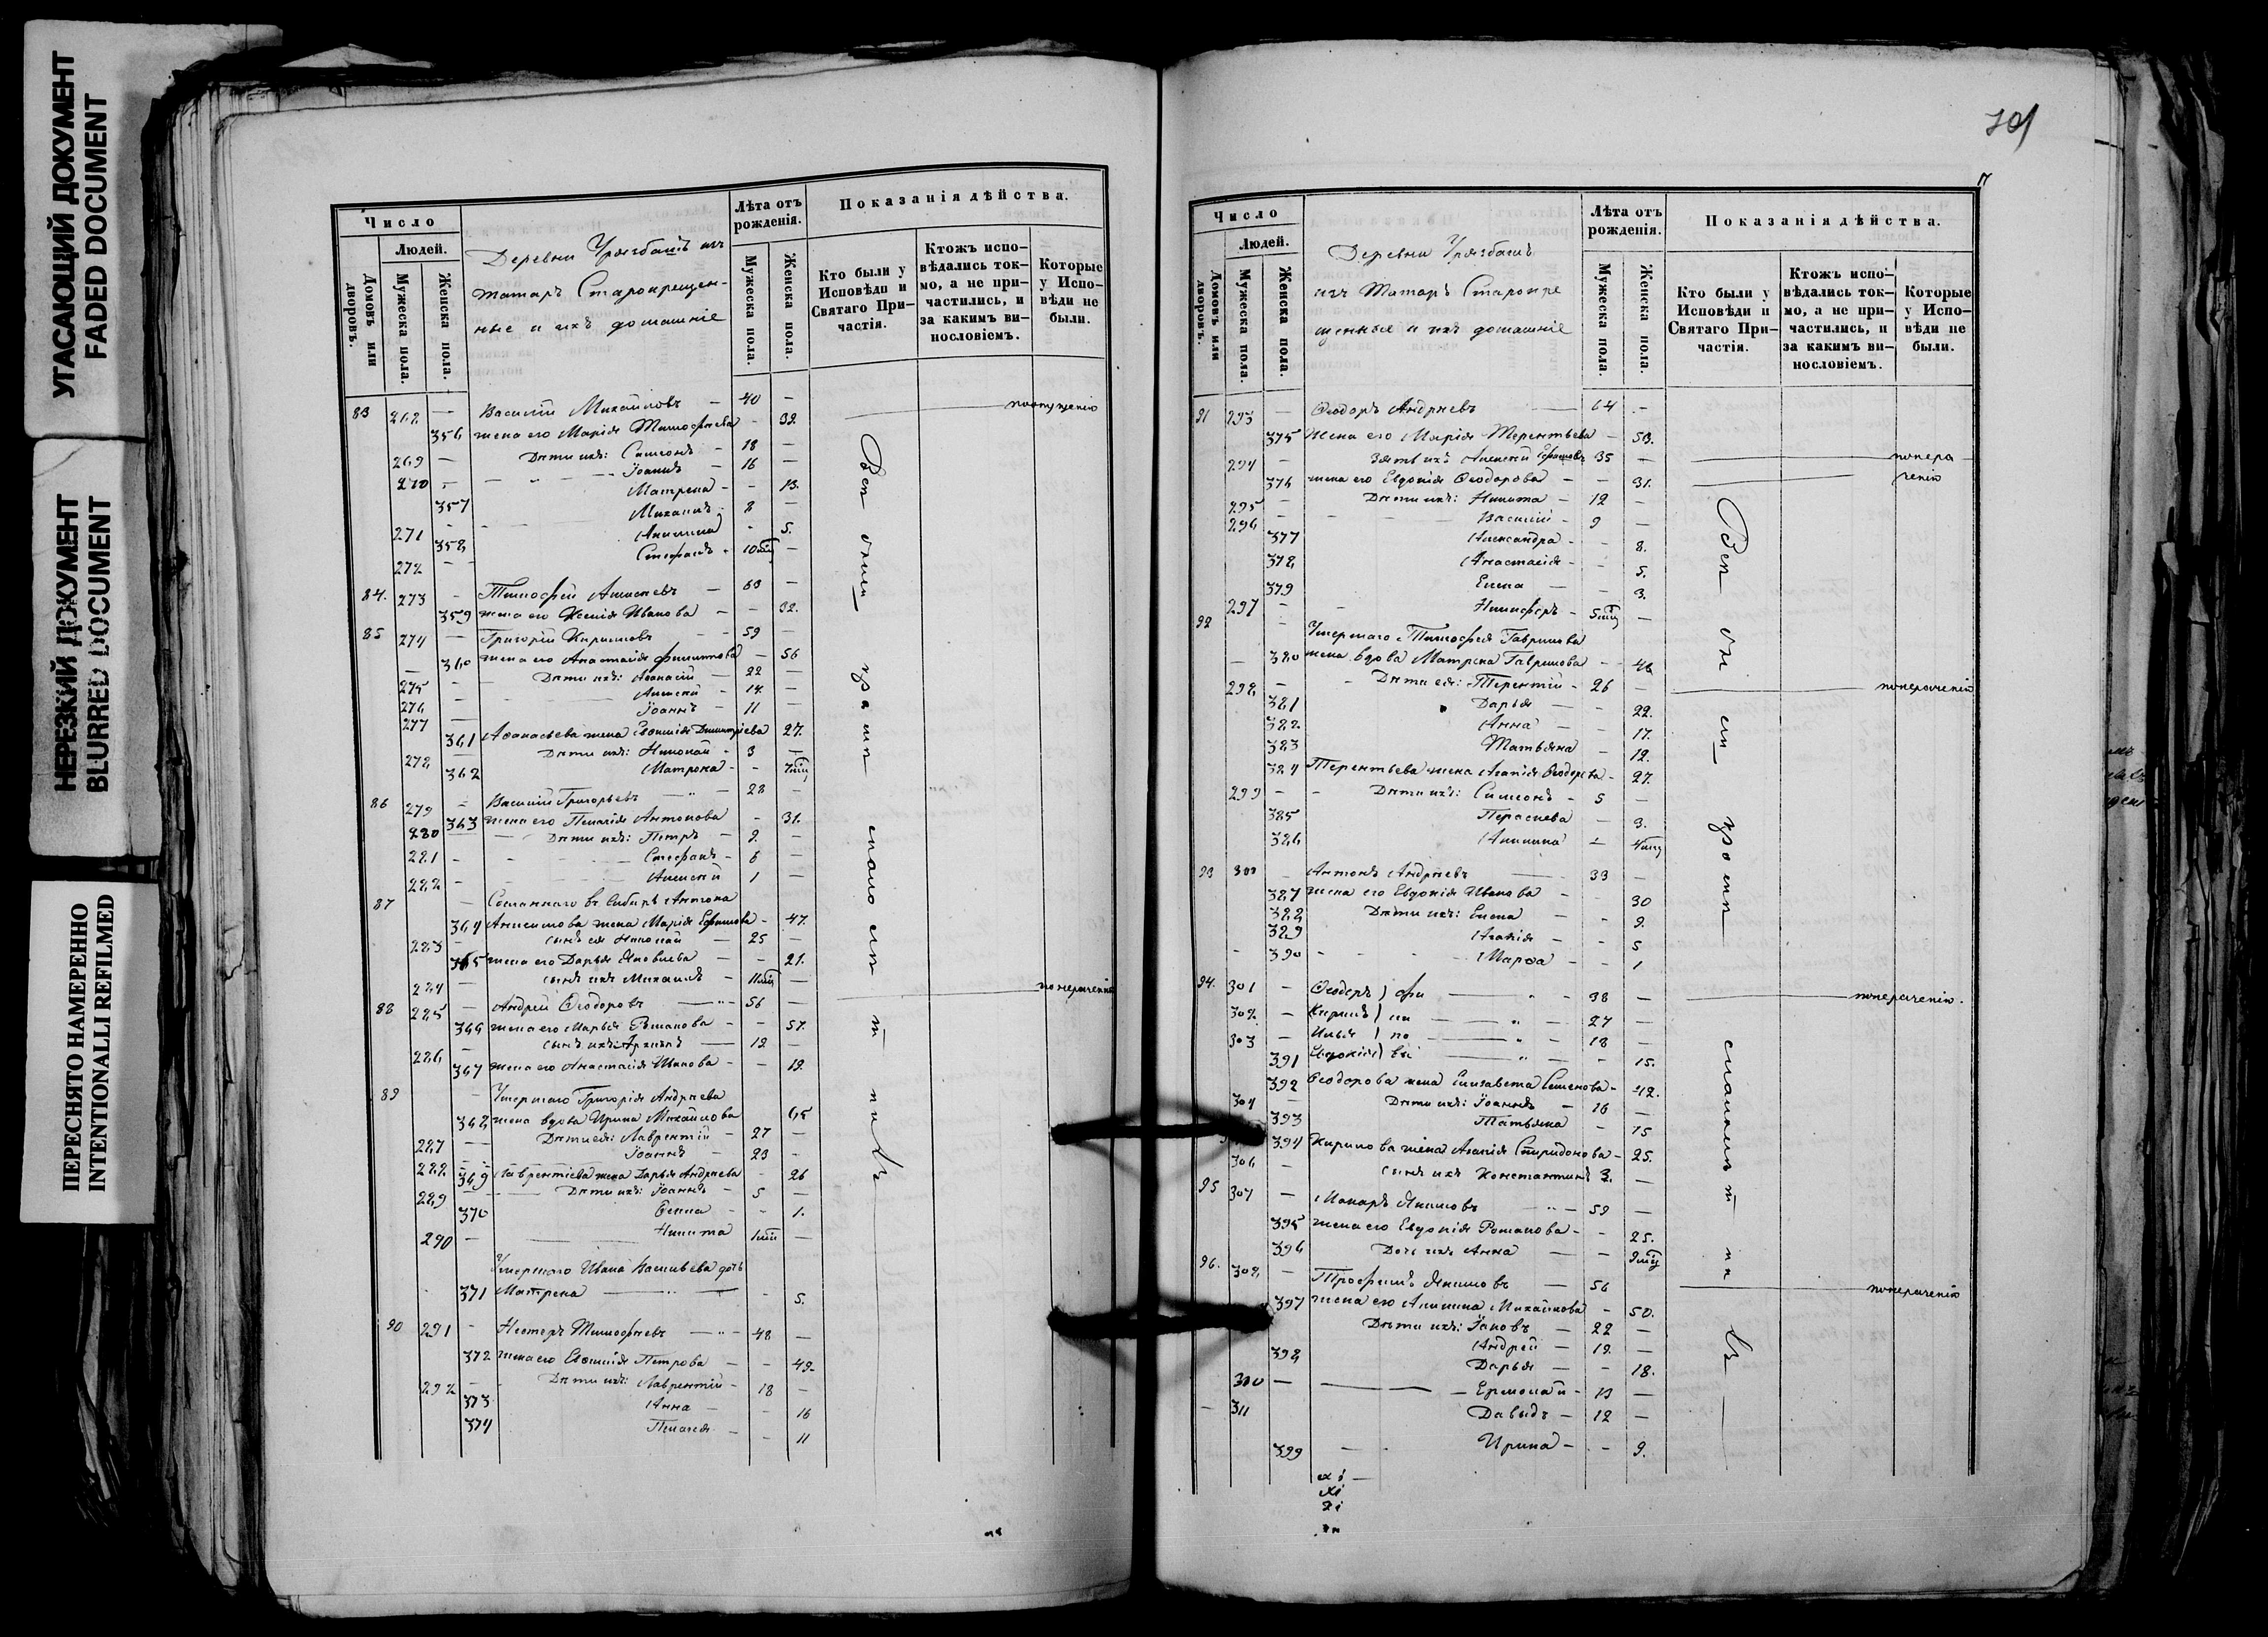 УГАСАЮЩИЙ ДОКУМЕНТ
FADED DOCUMENT
НЕРЕЗКИЙ ДОКУМЕНТ
BLURRED DOCUMENT
ПЕРЕСНЯТО НАМЕРЕННО
INTENTIONALI REFILMED
Число
Людей.
Домовъ или дворовъ.
Мужеска пола.
Женска пола.
Деревни
татаръ Старокрещен-
ные и ихъ домашніе
Лѣта отъ рожденія.
Мужеска пола.
Женска пола.
Показанія дѣйства.
Кто были у Исповѣди и Святаго При-частія.
Ктожъ испо-вѣдались ток-мо, а не при-частились, и за какимъ ви-нословіемъ.
Которые у Испо-вѣди не были.
83 268 — Василій Михайловъ — 40 —
356 жена его Марія Тимофѣева - 39.
269 — Дѣти ихъ: Симеонъ - 18 —
270 - Іоаннъ - 16 —
357 Матрена - - 13.
271 - Михаилъ - 8 —
358 Акилина - 5.
272 - Стефанъ - 10 мѣ —
84. 273 - Тимофей Алексѣевъ — 63 —
359 жена его Ксенія Иванова - - 32.
85 274 — Григорій Кириловъ - 59 —
360 жена его Анастасія Филипова - 56
275 - Дѣти ихъ: Аѳанасій — 22 —
276 - Алексѣй - 14 —
277 Іоаннъ - 11 —
361 Аѳанасьева жена Евѳимія Димитріева 27.
278 Дѣти ихъ: Николай - 3 —
362 Матрона - - 7 мѣ
86 279 - Василій Григорьевъ - 28 —
363 жена его Пелагія Антонова - 31.
280 Дѣти ихъ: Петръ - 9 —
281 - Стефанъ - 6 —
282 - Алексѣй 1 —
87 — Сосланнаго въ Сибирь Антона
364 Анисимова жена Марія Ефимова - 47.
283 - сынъ ея Николай — 25 —
365 жена его Дарья Яковлева - - 21.
284 — сынъ ихъ Михаилъ - 11 мѣ —
88 285 — Андрей Ѳеодоровъ - 56 — понераченію
366 жена его Марья Романова - - 57.
286 — сынъ ихъ: Архипъ — 19 —
367 жена его Анастасія Иванова - - 19.
89 - Умершаго Григорія Андреева
368 жена вдова Ирина Михайлова 65
287 — Дѣти ея: Лаврентій - 27 —
288 - Іоаннъ - 23 -
369 Лаврентіева жена Дарья Андреева - 26
289 - Дѣти ихъ: Іоаннъ - 5 —
370 - 1.
290 - Никита 1 мѣ —
Умершаго Ивана Васильева дочь
371 Матрена - 5.
90 291 - Несторъ Тимофѣевъ - 48 —
372 жена его Евѳимія Петрова — - 49.
292 - Дѣти ихъ: Лаврентій - 18 —
373 Анна - - 16
374 Пелагея - - 11
701
17
Число
Людей.
Домовъ или дворовъ.
Мужеска пола.
Женска пола.
Деревни
изъ Татаръ Старокре
щенныя и ихъ домашніе
Лѣта отъ рожденія.
Мужеска пола.
Женска пола.
Показанія дѣйства.
Кто были у Исповѣди и Святаго При-частія.
Ктожъ испо-вѣдались ток-мо, а не при-частились, и за какимъ ви-нословіемъ.
Которые у Испо-вѣди не были.
91 293 — Ѳеодоръ Андреевъ — 64 -
375 жена его Марія Терентьева - 53.
294 - Зять ихъ Алексѣй 35 — понера
376 жена его Евдокія Ѳеодорова - - 31. ченію
295 - Дѣти ихъ: Никита - 12 —
296 - Василій - 9 —
377 Александра - - 8.
378 Анастасія - - 5.
379 Елена - 3.
297 - Никифоръ - 5 мѣ —
92 - Умершаго Тимофея Гаврилова
380 жена вдова Матрена Гаврилова - 46
298 - Дѣти ея: Терентій - 26 — понераченію
381 Дарья - 22.
382 Анна - 17.
383 Татьяна - 12.
384 Терентьева жена Агапія Ѳеодорова - 27.
299 - Дѣти ихъ: Симеонъ - 5 —
385 - 3.
386 Акилина - 4 мѣ
93 300 - Антонъ Андреевъ — 33 —
387 жена его Евдокія Иванова - 30
388 Дѣти ихъ: Елена - - 9.
389 Агапія - - 5
390 Марѳа - - 1
94. 301 - Ѳеодоръ — 38 — понераченію.
302 - Кирилъ — 27 —
303 - Илья — 18 —
391 Евдокія — 15.
392 Ѳеодорова жена Елизавета Семенова - 42.
304 - Дѣти ихъ: Іоаннъ - 16 —
393 Татьяна - 15
394 Кирилова жена Агапія Спиридонова - 25.
306 - сынъ ихъ Константинъ 3. —
95 307 — Макаръ Якимовъ - 59 —
395 жена его Евдокія Романова - - 25.
396 Дочь ихъ Анна — - 9 мѣ
96. 308 - Трофимъ Якимовъ — 56 понераченію
397 жена его Акилина Михайлова - 50.
Дѣти ихъ: Іаковъ — 22 —
Андрей - 19 —
398 Дарья - - 18.
310 — Ермолай - 13 —
311 Давыдъ - 12 —
399 Ирина - - 9.